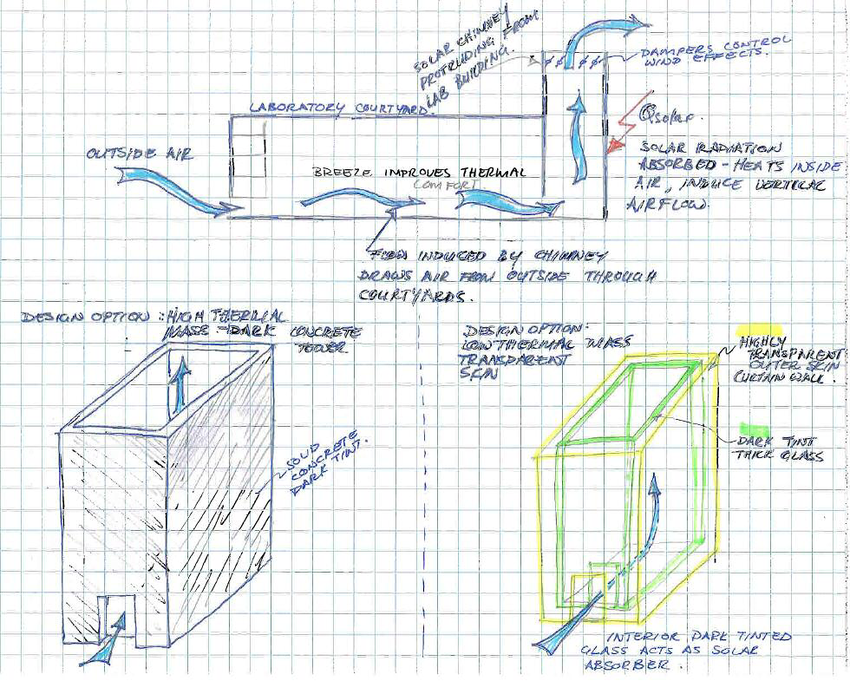 SOLAR CHIMNEY
PROTRUDING FROM
LAB BUILDING.
DAMPERS CONTROL
WIND EFFECTS.
LABORATORY COURTYARD.
Qsolar.
OUTSIDE AIR
BREEZE IMPROVES THERMAL
COMFORT
SOLAR RADIATION
ABSORBED - HEATS INSIDE
AIR, INDUCE VERTICAL
AIRFLOW.
FLOW INDUCED BY CHIMNEY
DRAWS AIR FROM OUTSIDE THROUGH
COURTYARDS.
DESIGN OPTION: HIGH THERMAL
MASS - DARK CONCRETE
TOWER
SOLID
CONCRETE
DARK TINT.
DESIGN OPTION:
LOW THERMAL MASS
TRANSPARENT
SKIN
HIGHLY
TRANSPARENT
OUTER SKIN
CURTAIN WALL.
DARK TINT
THICK GLASS
INTERIOR DARK TINTED
GLASS ACTS AS SOLAR
ABSORBER.